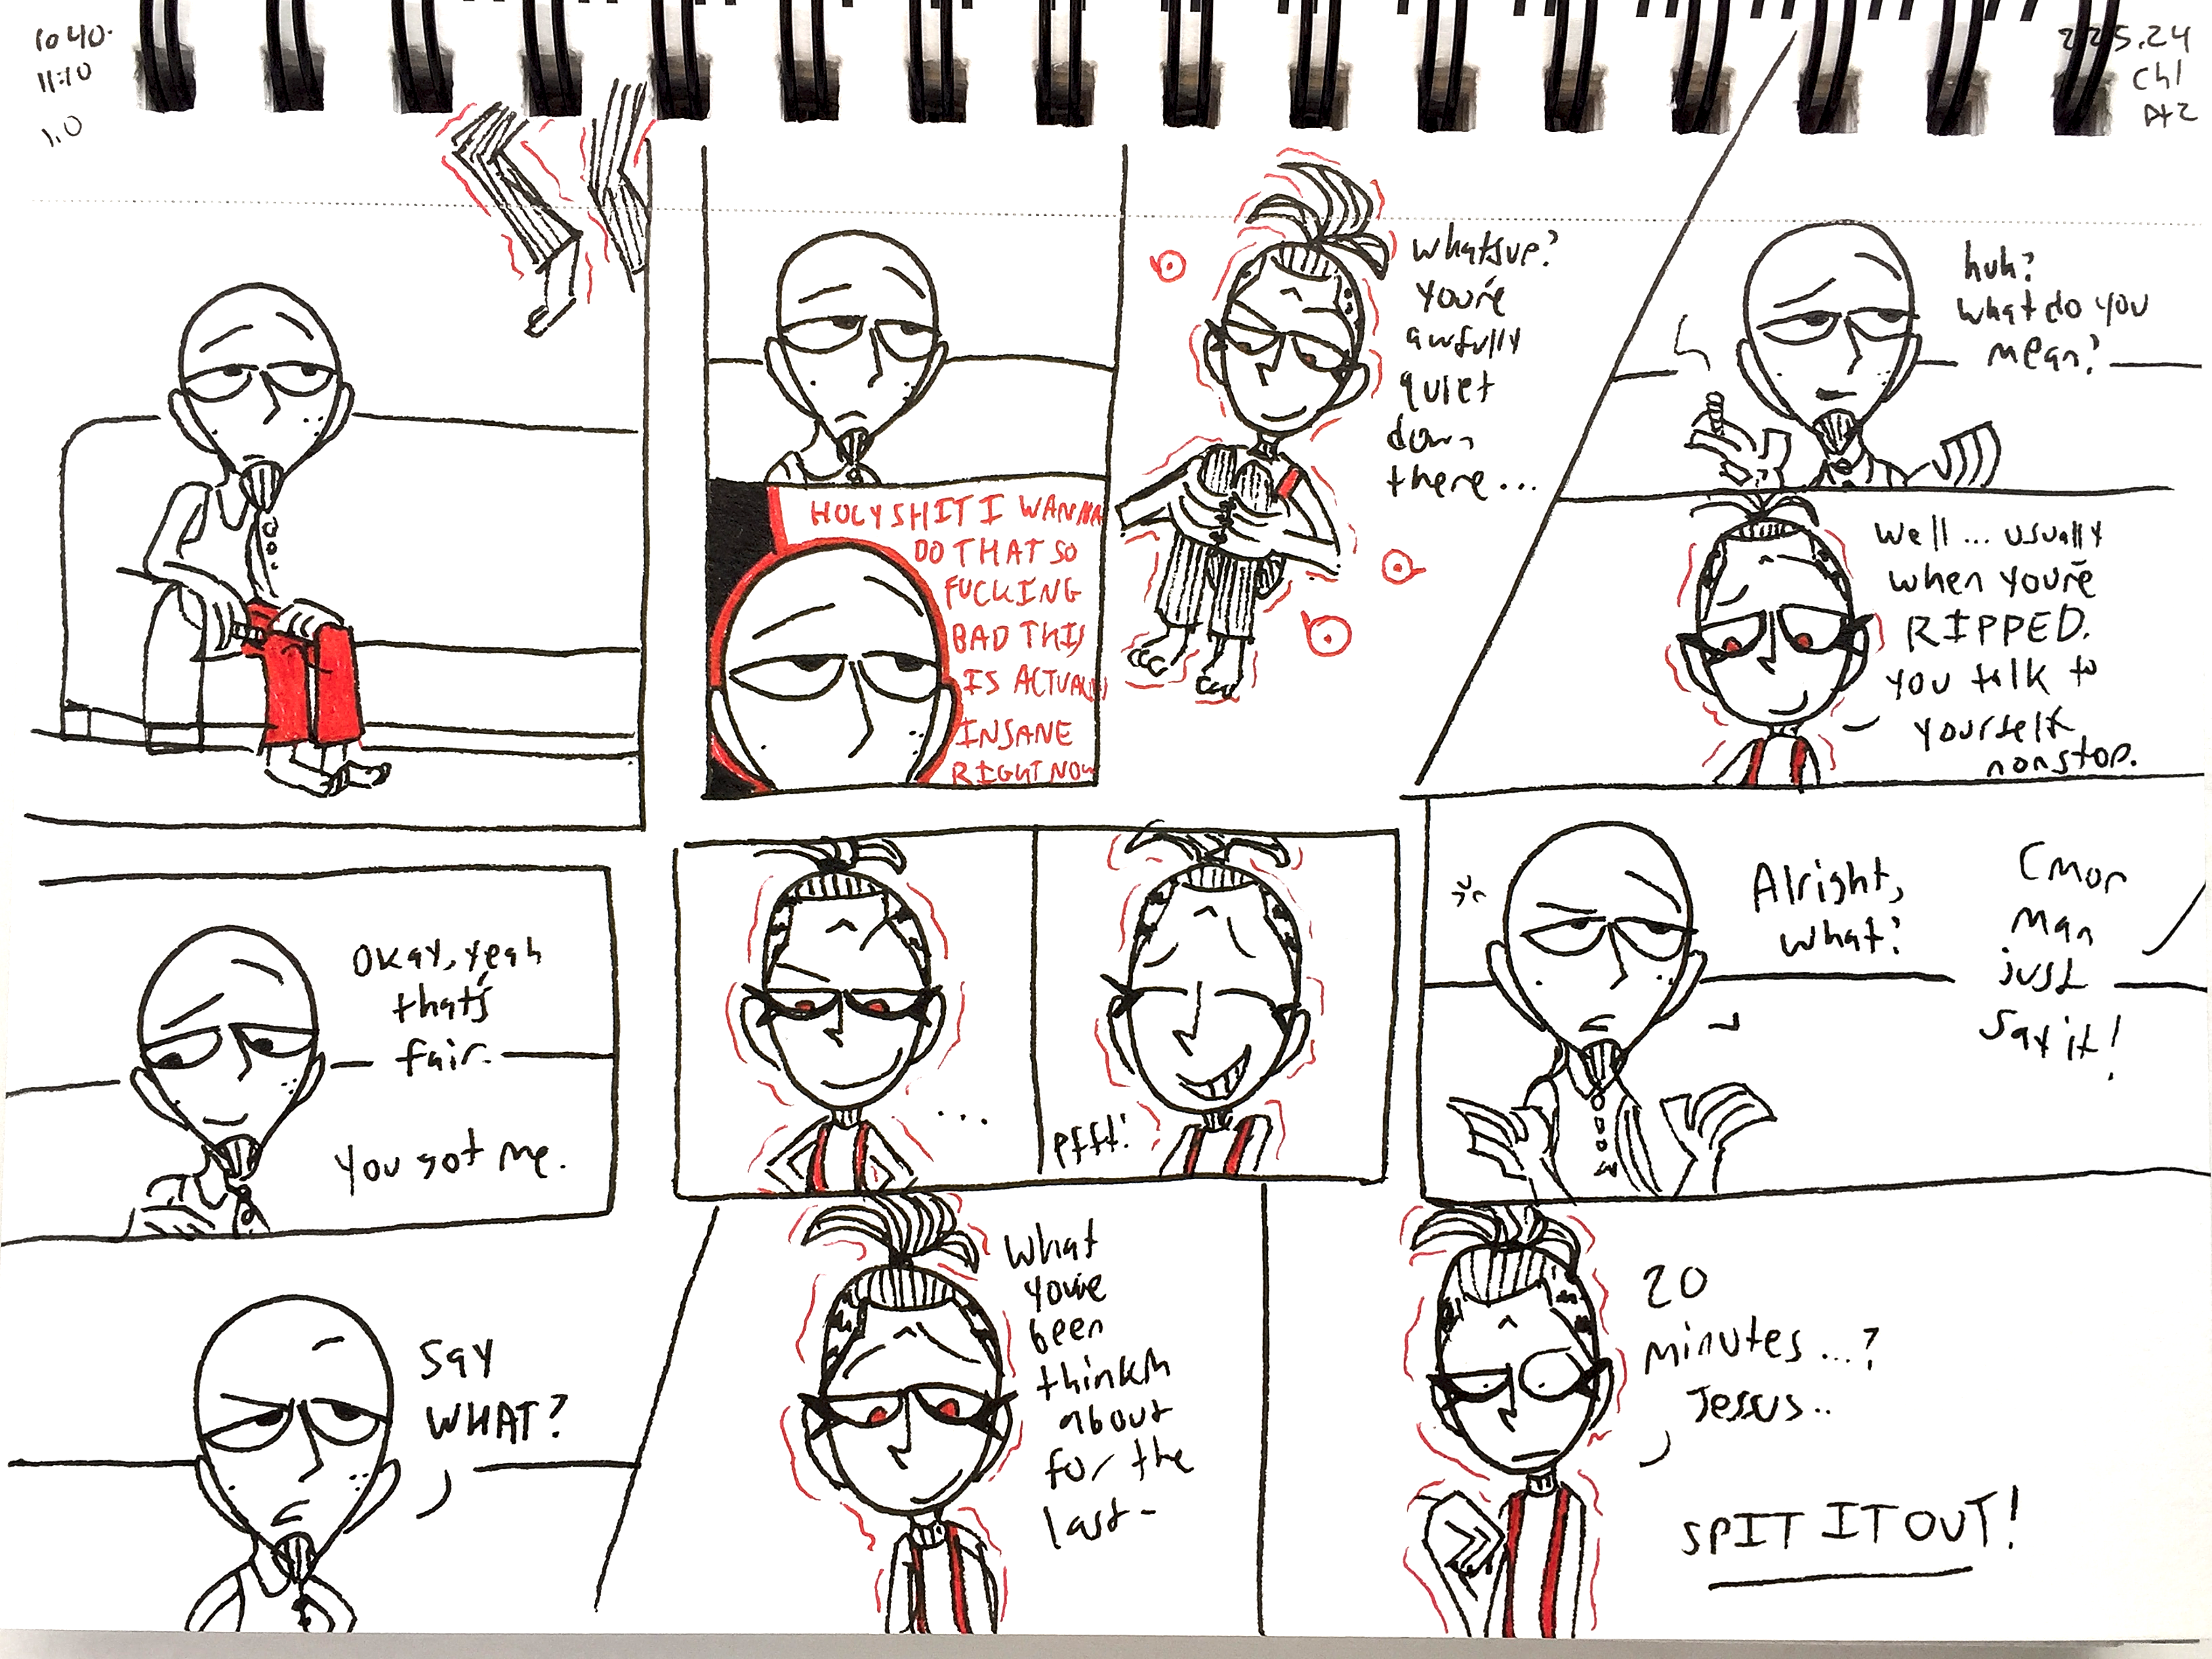 10 40-
11:10
1.0
225.24
Ch1
Pt2
HOLY SHIT I WANNA
DO THAT SO
FUCKING
BAD THIS
IS ACTUALLY
INSANE
RIGHT NOW
whatsup?
you're
awfully
quiet
down
there...
huh?
what do you
mean?
Well... usually
when you're
RIPPED.
you talk to
yourself
nonstop.
Okay, yeah
that's
fair.
You got me.
...
pfft!
Alright,
what?
Cmon
man
just
say it!
Say
WHAT?
What
you've
been
thinkin
about
for the
last-
20
minutes...?
Jesus..
SPIT IT OUT!